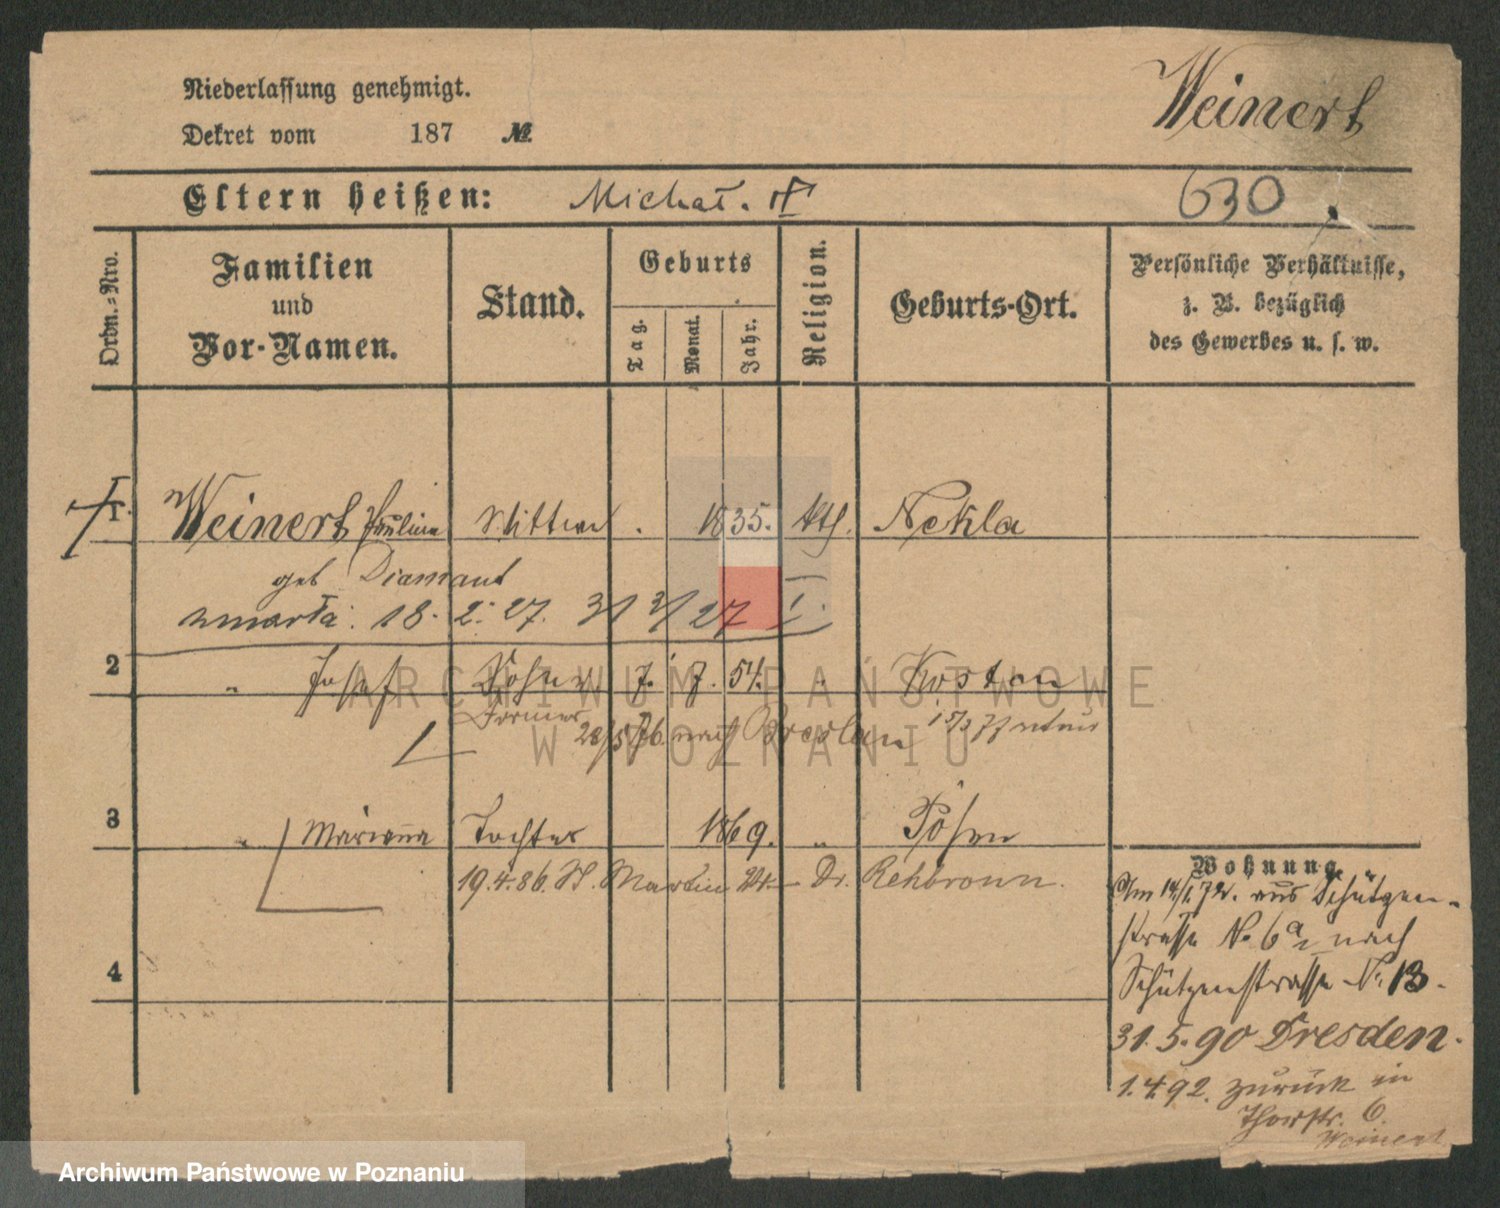 Niederlassung genehmigt.
Weinert
Dekret vom 187 №
Eltern heißen: Michał. 630
Ordn.=Nro.
Familien
und
Vor-Namen.
Stand.
Geburts
Tag.
Monat.
Jahr.
Religion.
Geburts-Ort.
Persönliche Verhältnisse,
z. B. bezüglich
des Gewerbes u. s. w.
1. Weinert Paulina Wittwe . 1835. kth. Nekla
geb Diamant
zmarła: 18. 2. 27. 31 3/27 I.
2 " Josef Sohn 7. 7. 54. Kosten
Former 28/5 76 nach Breslau 15/3 77 retour
3 " Marianna Tochter 1869. " Posen
19.4.86. St. Martin Dr. Rehbronn.
4
Wohnung
Am 14/1.72. aus Schützen-
strasse No 6a nach
Schützenstrasse No. 13.
31.5.90 Dresden.
1.4.92. zurück in
Thorstr. 6.
Weinert
ARCHIWUM PAŃSTWOWE
W POZNANIU
Archiwum Państwowe w Poznaniu